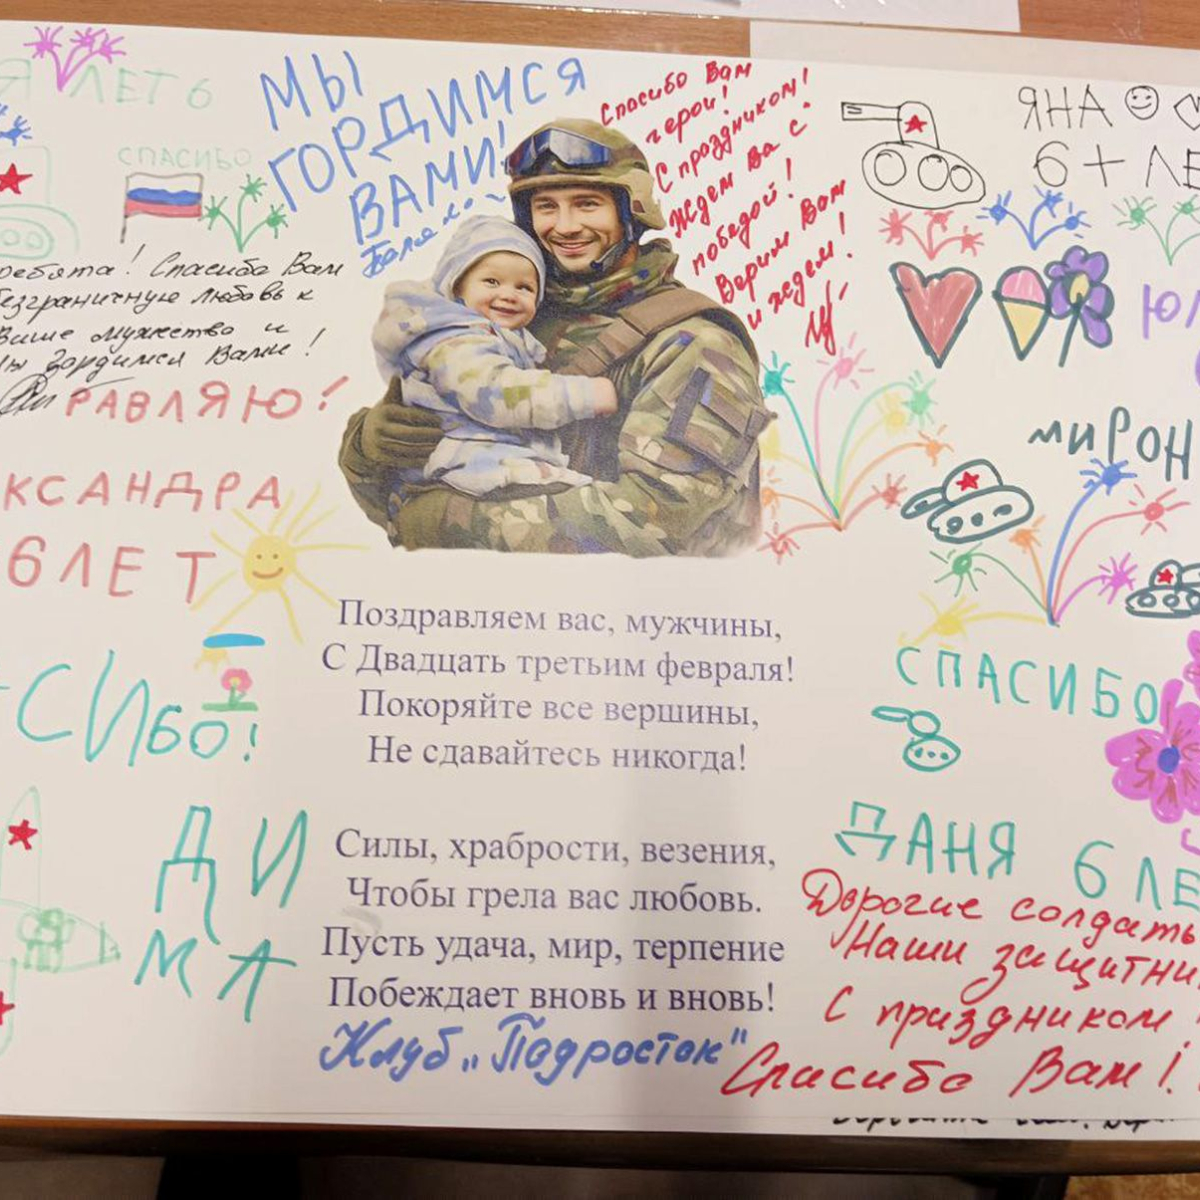 Я ЛЕТ 6
СПАСИБО
МЫ
ГОРДИМСЯ
ВАМИ!
Спасибо Вам
герои!
С праздником!
Ждем Ва с
победой!
Верим Вам
и ждем!
ЯНА
6 + ЛЕ
ребята! Спасибо Вам
безграничную любовь к
Ваше мужество и
гордимся Вами!
РАВЛЯЮ!
КСАНДРА
6 ЛЕТ
Ю
МИРОН
СИБО!
ДИ
МА
Поздравляем вас, мужчины,
С Двадцать третьим февраля!
Покоряйте все вершины,
Не сдавайтесь никогда!
Силы, храбрости, везения,
Чтобы грела вас любовь.
Пусть удача, мир, терпение
Побеждает вновь и вновь!
Клуб „Подросток"
СПАСИБО
ДАНЯ 6 ЛЕ
Дорогие солдаты
Наши защитни
С праздником!
Спасибо Вам!